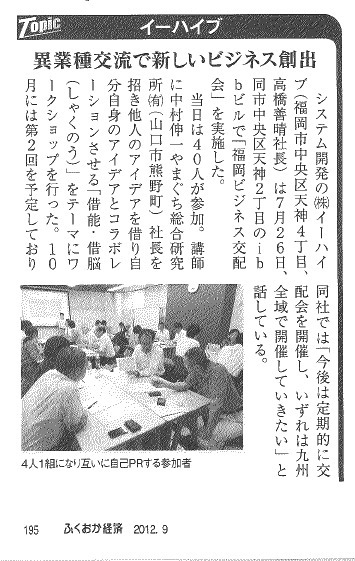 Topic
イーハイブ
異業種交流で新しいビジネス創出
システム開発の㈱イーハイ
ブ(福岡市中央区天神4丁目、
高橋善晴社長)は7月26日、
同市中央区天神2丁目のib
bビルで「福岡ビジネス交配
会」を実施した。
当日は40人が参加。講師
に中村伸一やまぐち総合研究
所㈲(山口市熊野町)社長を
招き他人のアイデアを借り自
分自身のアイデアとコラボレ
ーションさせる「借能・借脳
(しゃくのう)」をテーマにワ
ークショップを行った。10
月には第2回を予定しており
同社では「今後は定期的に交
配会を開催し、いずれは九州
全域で開催していきたい」と
話している。
4人1組になり互いに自己PRする参加者
195 ふくおか経済 2012.9